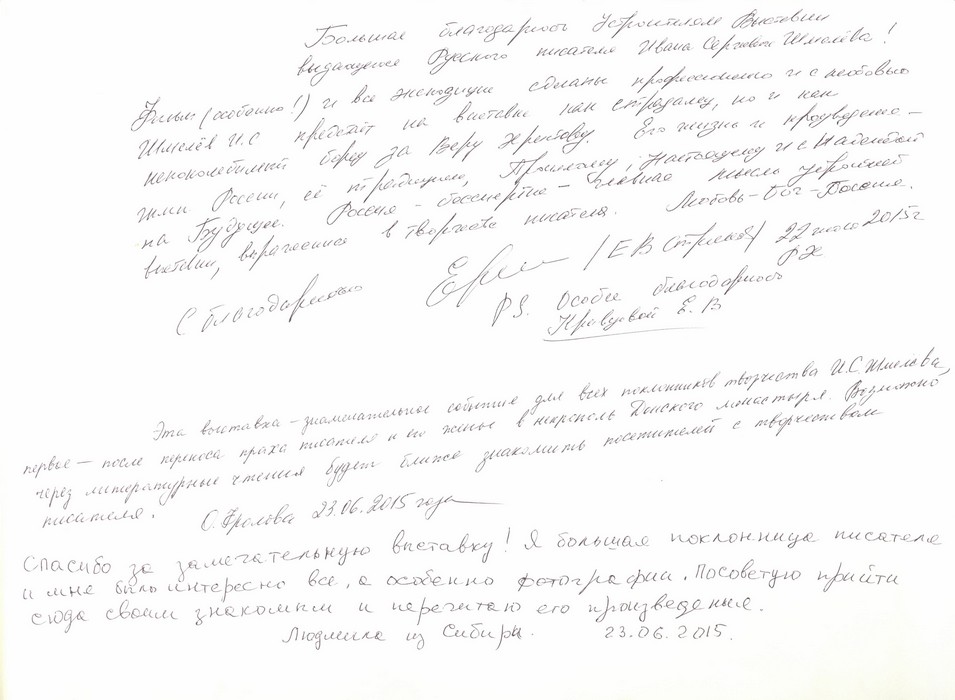 Большая благодарность Устроителям Выставки
выдающегося Русского писателя Ивана Сергеевича Шмелёва!
Фильм (особенно!) и все экспозиции сделаны профессионально и с любовью
Шмелёв И.С предстаёт на выставке как страдалец, но и как
непоколебимый борец за Веру Христову. Его жизнь и произведения –
гимн России, её традициям, Прошлому, Настоящему и с Надеждой
на Будущее. Россия – бессмертна – главная мысль устроителей
выставки, выраженная в творчестве писателя. Любовь – Бог – Россия.
С благодарностью /Е В 22 июня 2015 г
РХ
PS. Особая благодарность
Кравцовой Е. В
Эта выставка – знаменательное событие для всех поклонников творчества И.С. Шмелева,
первое – после переноса праха писателя и его жены в некрополь Донского монастыря. Возможно
через литературные чтения будет ближе знакомить посетителей с творчеством
писателя. О. Фролова 23.06.2015 года
Спасибо за замечательную выставку! Я большая поклонница писателя
и мне было интересно все, а особенно фотографии. Посоветую прийти
сюда своим знакомым и перечитаю его произведения.
Людмила из Сибири. 23.06.2015.